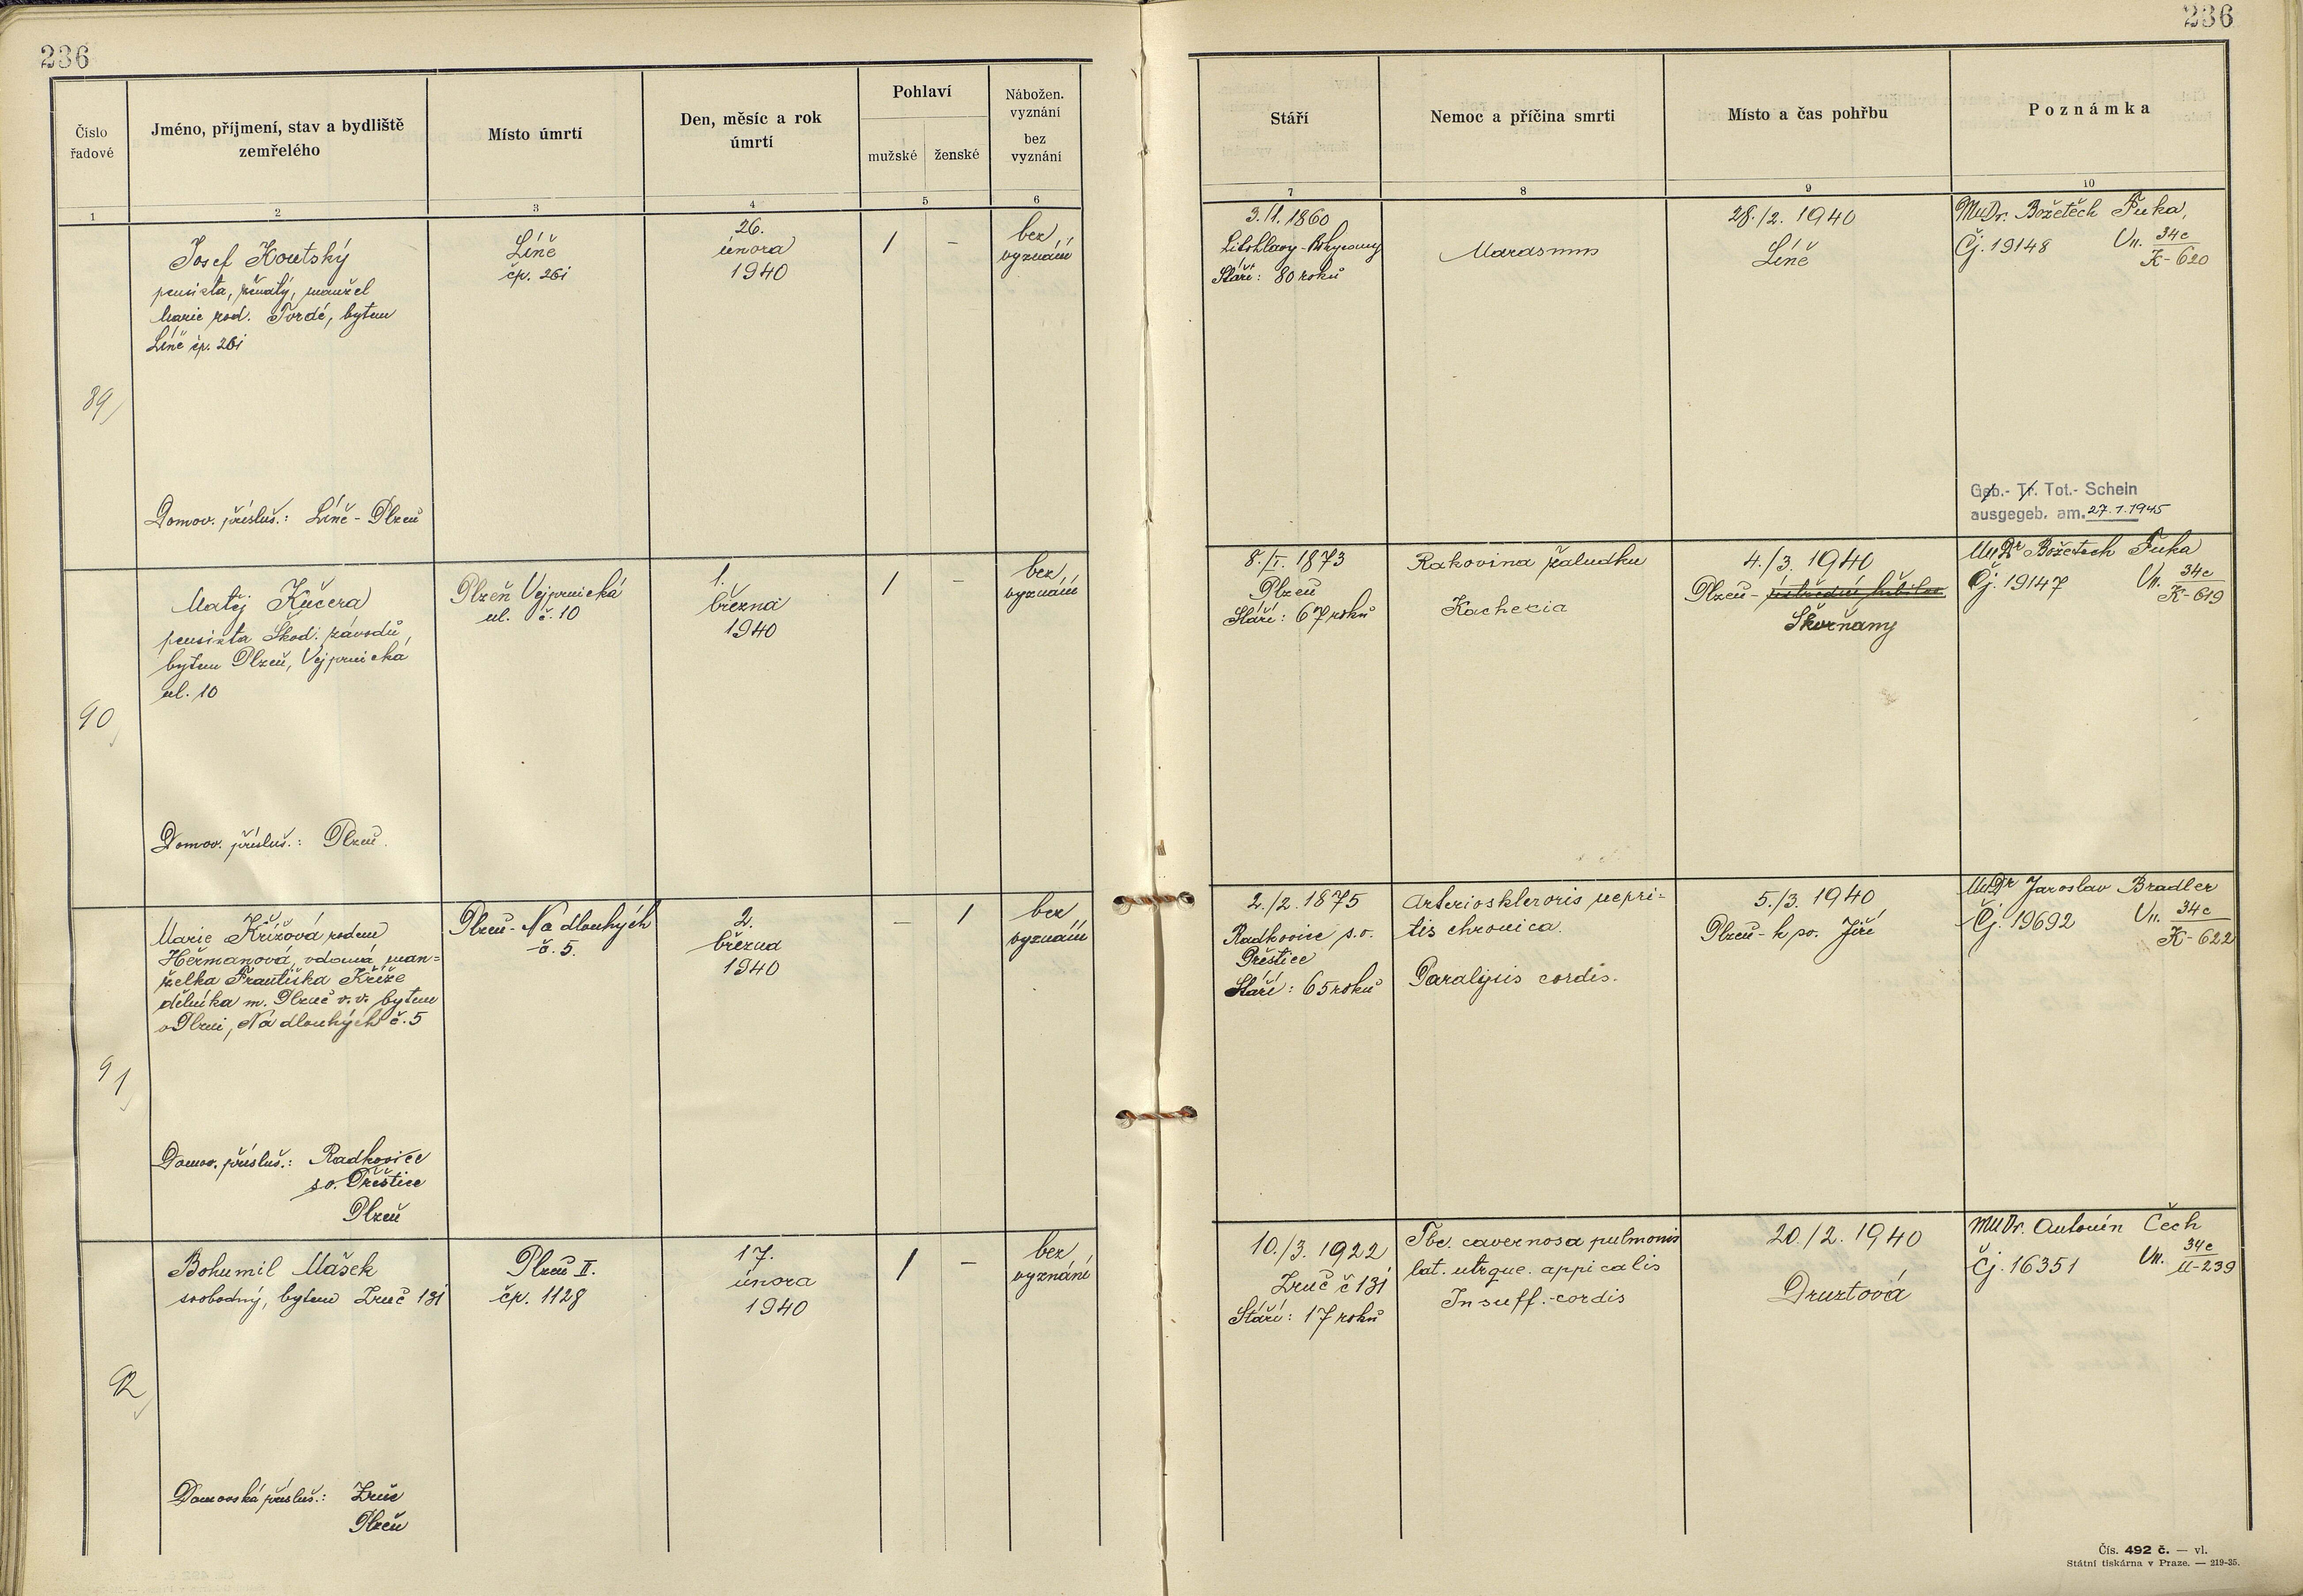 236
236
Číslo řadové
Jméno, příjmení, stav a bydliště zemřelého
Místo úmrtí
Den, měsíc a rok úmrtí
Pohlaví
mužské
ženské
Nábožen. vyznání
bez vyznání
Stáří
Nemoc a příčina smrti
Místo a čas pohřbu
Poznámka
1
2
3
4
5
6
7
8
9
10
89
Josef Koutský
pensista, ženatý, manžel
Marie rod. Tvrdé, bytem
Líně čp. 261
Domov. přísluš.: Líně - Plzeň
Líně
čp. 261
26.
února
1940
/
-
bez
vyznání
3./1. 1860
Litohlavy - Rokycany
Stáří: 80 roků
Marasmus
28./2. 1940
Líně
MuDr. Božetěch Fuka,
Čj. 19148 Vn. 34e
K-620
Geb.- Tr. Tot.- Schein
ausgegeb. am. 27.1.1945
90
Matěj Kučera
pensista Škod. závodů
bytem Plzeň, Vejprnická
ul. 10
Domov. přísluš.: Plzeň.
Plzeň Vejprnická
ul. č. 10
1.
března
1940
/
-
bez
vyznání
8./I. 1873
Plzeň
Stáří: 67 roků
Rakovina žaludku
Kachexia
4./3. 1940
Plzeň - ústřední hřbitov
Škvrňany
MuDr Božetech Fuka
Čj. 19147 Vn. 34e
K-619
91
Marie Křížová rodem
Heřmanová, vdova, man=
želka Františka Kříže
dělníka m. Plzně v.v. bytem
v Plzni, Na dlouhých č. 5
Domov. přísluš.: Radkovice
s.o. Přeštice
Plzeň
Plzeň - Na dlouhých
č. 5.
2.
března
1940
-
/
bez
vyznání
2./2. 1875
Radkovice s.o.
Přeštice
Stáří: 65 roků
Arterioskleroris nepri=
tis chronica.
Paralysis cordis.
5./3. 1940
Plzeň - k sv. Jiří
MuDr Jaroslav Bradler
Čj. 19692 Vn. 34e
K-622
92
Bohumil Mášek
svobodný, bytem Zruč 131
Domovská přísluš.: Zruč
Plzeň
Plzeň II.
čp. 1128
17.
února
1940
/
-
bez
vyznání
10./3. 1922
Zruč č 131
Stáří: 17 roků
Tbc. cavernosa pulmonis
lat. utrque. appicalis
Insuff. cordis
20./2. 1940
Druztová
MUDr. Antonín Čech
Čj. 16351 Vn. 34e
M-239
Čís. 492 č. — vl.
Státní tiskárna v Praze. — 219-35.